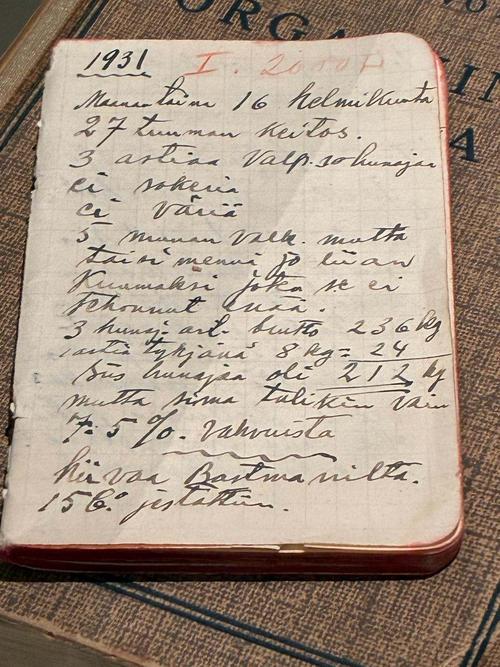 ORGA
A
1931 I.
Maanantaina 16 helmikuuta
27 tunnman keitos.
3 astiaa Valp. so hunajaa
ei sokeria
ei väriä
5 munan valk. mutta
taisi mennä jo liian
kuumaksi joka se ei
enää.
3 hunaj. ast. brutto 236 kg
1 astia tyhjänä 8 kg = 24
Siis hunajaa oli 212 kg
mutta sima tulikin vain
7.5 %. vahvuista
hiivaa Bastmanilta.
15 C.° jestattiin.